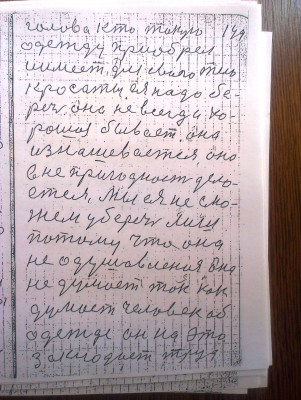 голова кто такую 144
одежду приобрел
имеет для своего тела
кросаты ея надо бе-
реч. она не всегда хо-
рошоя бывает. она
изнашевается она
в не пригодност дело-
ется, Мы ея не смо-
жем убереч лиш
потому что она
не одушавленая Она
не думает так как
думает человек об
одежде он на это
закладает труд